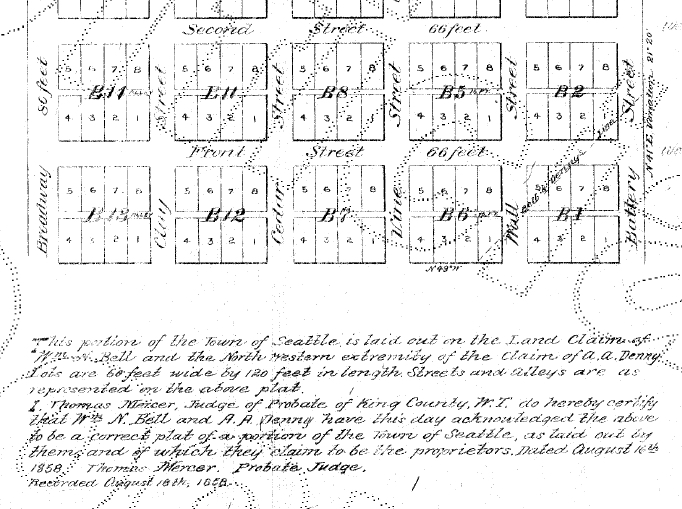 Second Street 66 feet
5 6 7 8 5 6 7 8 5 6 7 8 5 6 7 8 5 6 7 8
86 feet B14 Street B11 Street B8 Street B5 Street B2 Street N 41° E Variation 21° 20'
4 3 2 1 4 3 2 1 4 3 2 1 4 3 2 1 4 3 2 1
Front Street 66 feet
5 6 7 8 5 6 7 8 5 6 7 8 5 6 7 8 6 7 8
Broadway B13 Clay B12 Cedar B7 Vine B6 Wall B1 Battery
4 3 2 1 4 3 2 1 4 3 2 1 4 3 2 1 4 3 2 1
N 49° W
This portion of the Town of Seattle is laid out on the Land Claim of
Wm. N. Bell and the North Western extremity of the Claim of A. A. Denny
Lots are 60 feet wide by 120 feet in length. Streets and alleys are as
represented on the above plat.
I, Thomas Mercer, Judge of Probate of King County, W.T. do hereby certify
that Wm N. Bell and A. A. Denny have this day acknowledged the above
to be a correct plat of a portion of the Town of Seattle, as laid out by
them, and of which they claim to be the proprietors. Dated August 16th
1858. Thomas Mercer. Probate Judge.
Recorded August 18th, 1858.